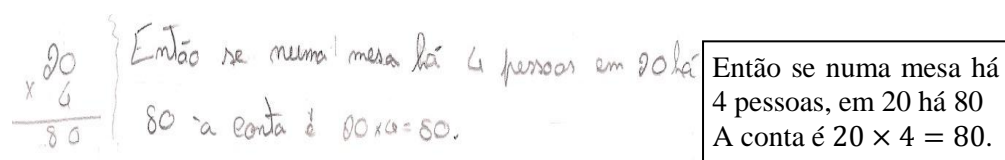 20
× 4
80
Então se numa mesa há 4 pessoas em 20 há
80 a conta é 20×4=80.
Então se numa mesa há
4 pessoas, em 20 há 80
A conta é 20 × 4 = 80.